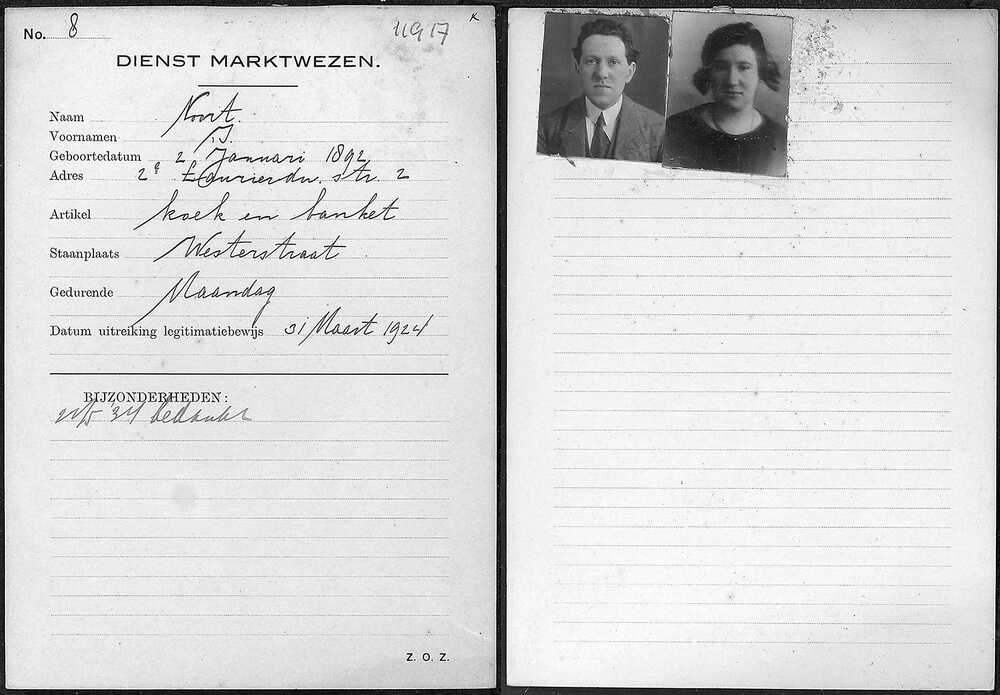 No. 8 11917 K
DIENST MARKTWEZEN.
Naam Noort.
Voornamen J.
Geboortedatum 2 Januari 1892
Adres 2e Laurierdw. str. 2
Artikel koek en banket
Staanplaats Westerstraat
Gedurende Maandag
Datum uitreiking legitimatiebewijs 31 Maart 1924
BIJZONDERHEDEN:
'34 bedankt
Z. O. Z.